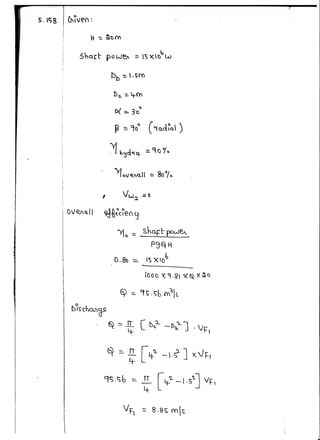 5.158
Given:
H = 20m
Shaft power = 15×10⁶ w
D_b = 1.5m
D_o = 4m
α = 30°
β = 90° (radial)
η_hydra = 90%
η_overall = 80%
V_w₂ = 0
Overall efficiency
η_o = Shaft power / ρgQH
0.80 = 15×10⁶ / 1000 × 9.81 × Q × 20
Q = 95.56 m³/s
Discharge
Q = π/4 [D_o² - D_b²] . V_F₁
Q = π/4 [4² - 1.5²] × V_F₁
95.56 = π/4 [4² - 1.5²] V_F₁
V_F₁ = 8.85 m/s